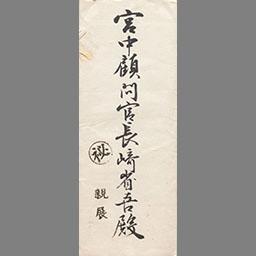 宮中顧問官長崎省吾殿
秘
親展